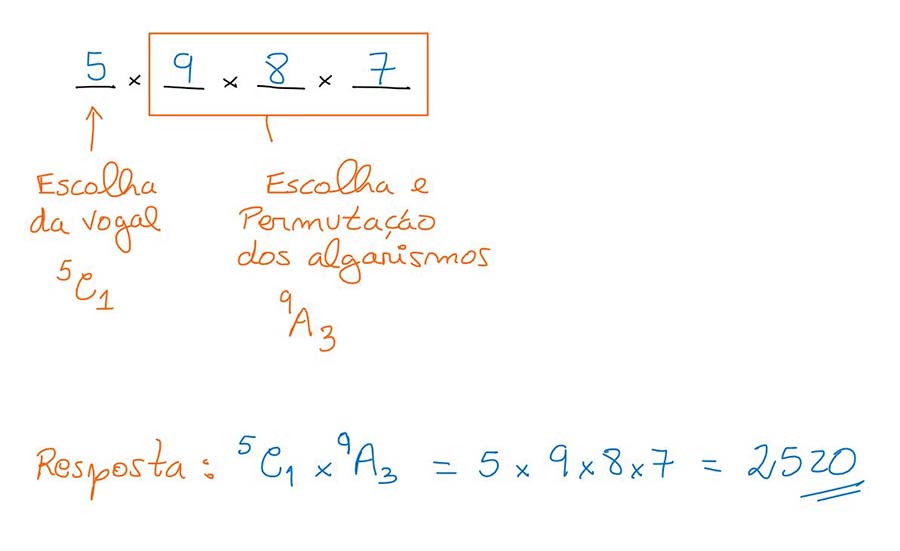 5 × 9 × 8 × 7
Escolha
da vogal
⁵C₁
Escolha e
Permutação
dos algarismos
⁹A₃
Resposta: ⁵C₁ × ⁹A₃ = 5 × 9 × 8 × 7 = 2520